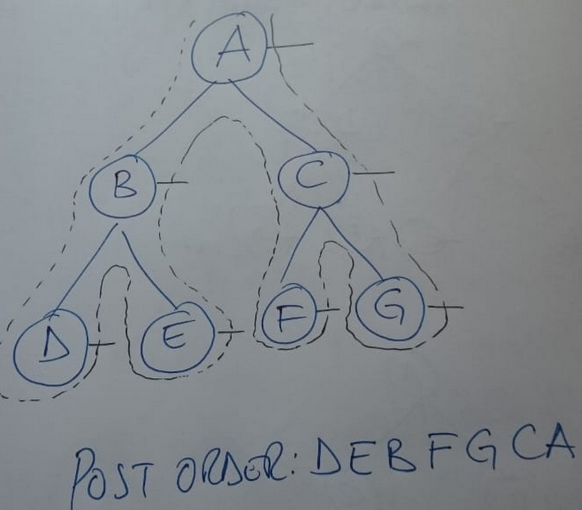 A
B
C
D
E
F
G
POST ORDER: DEBFGCA